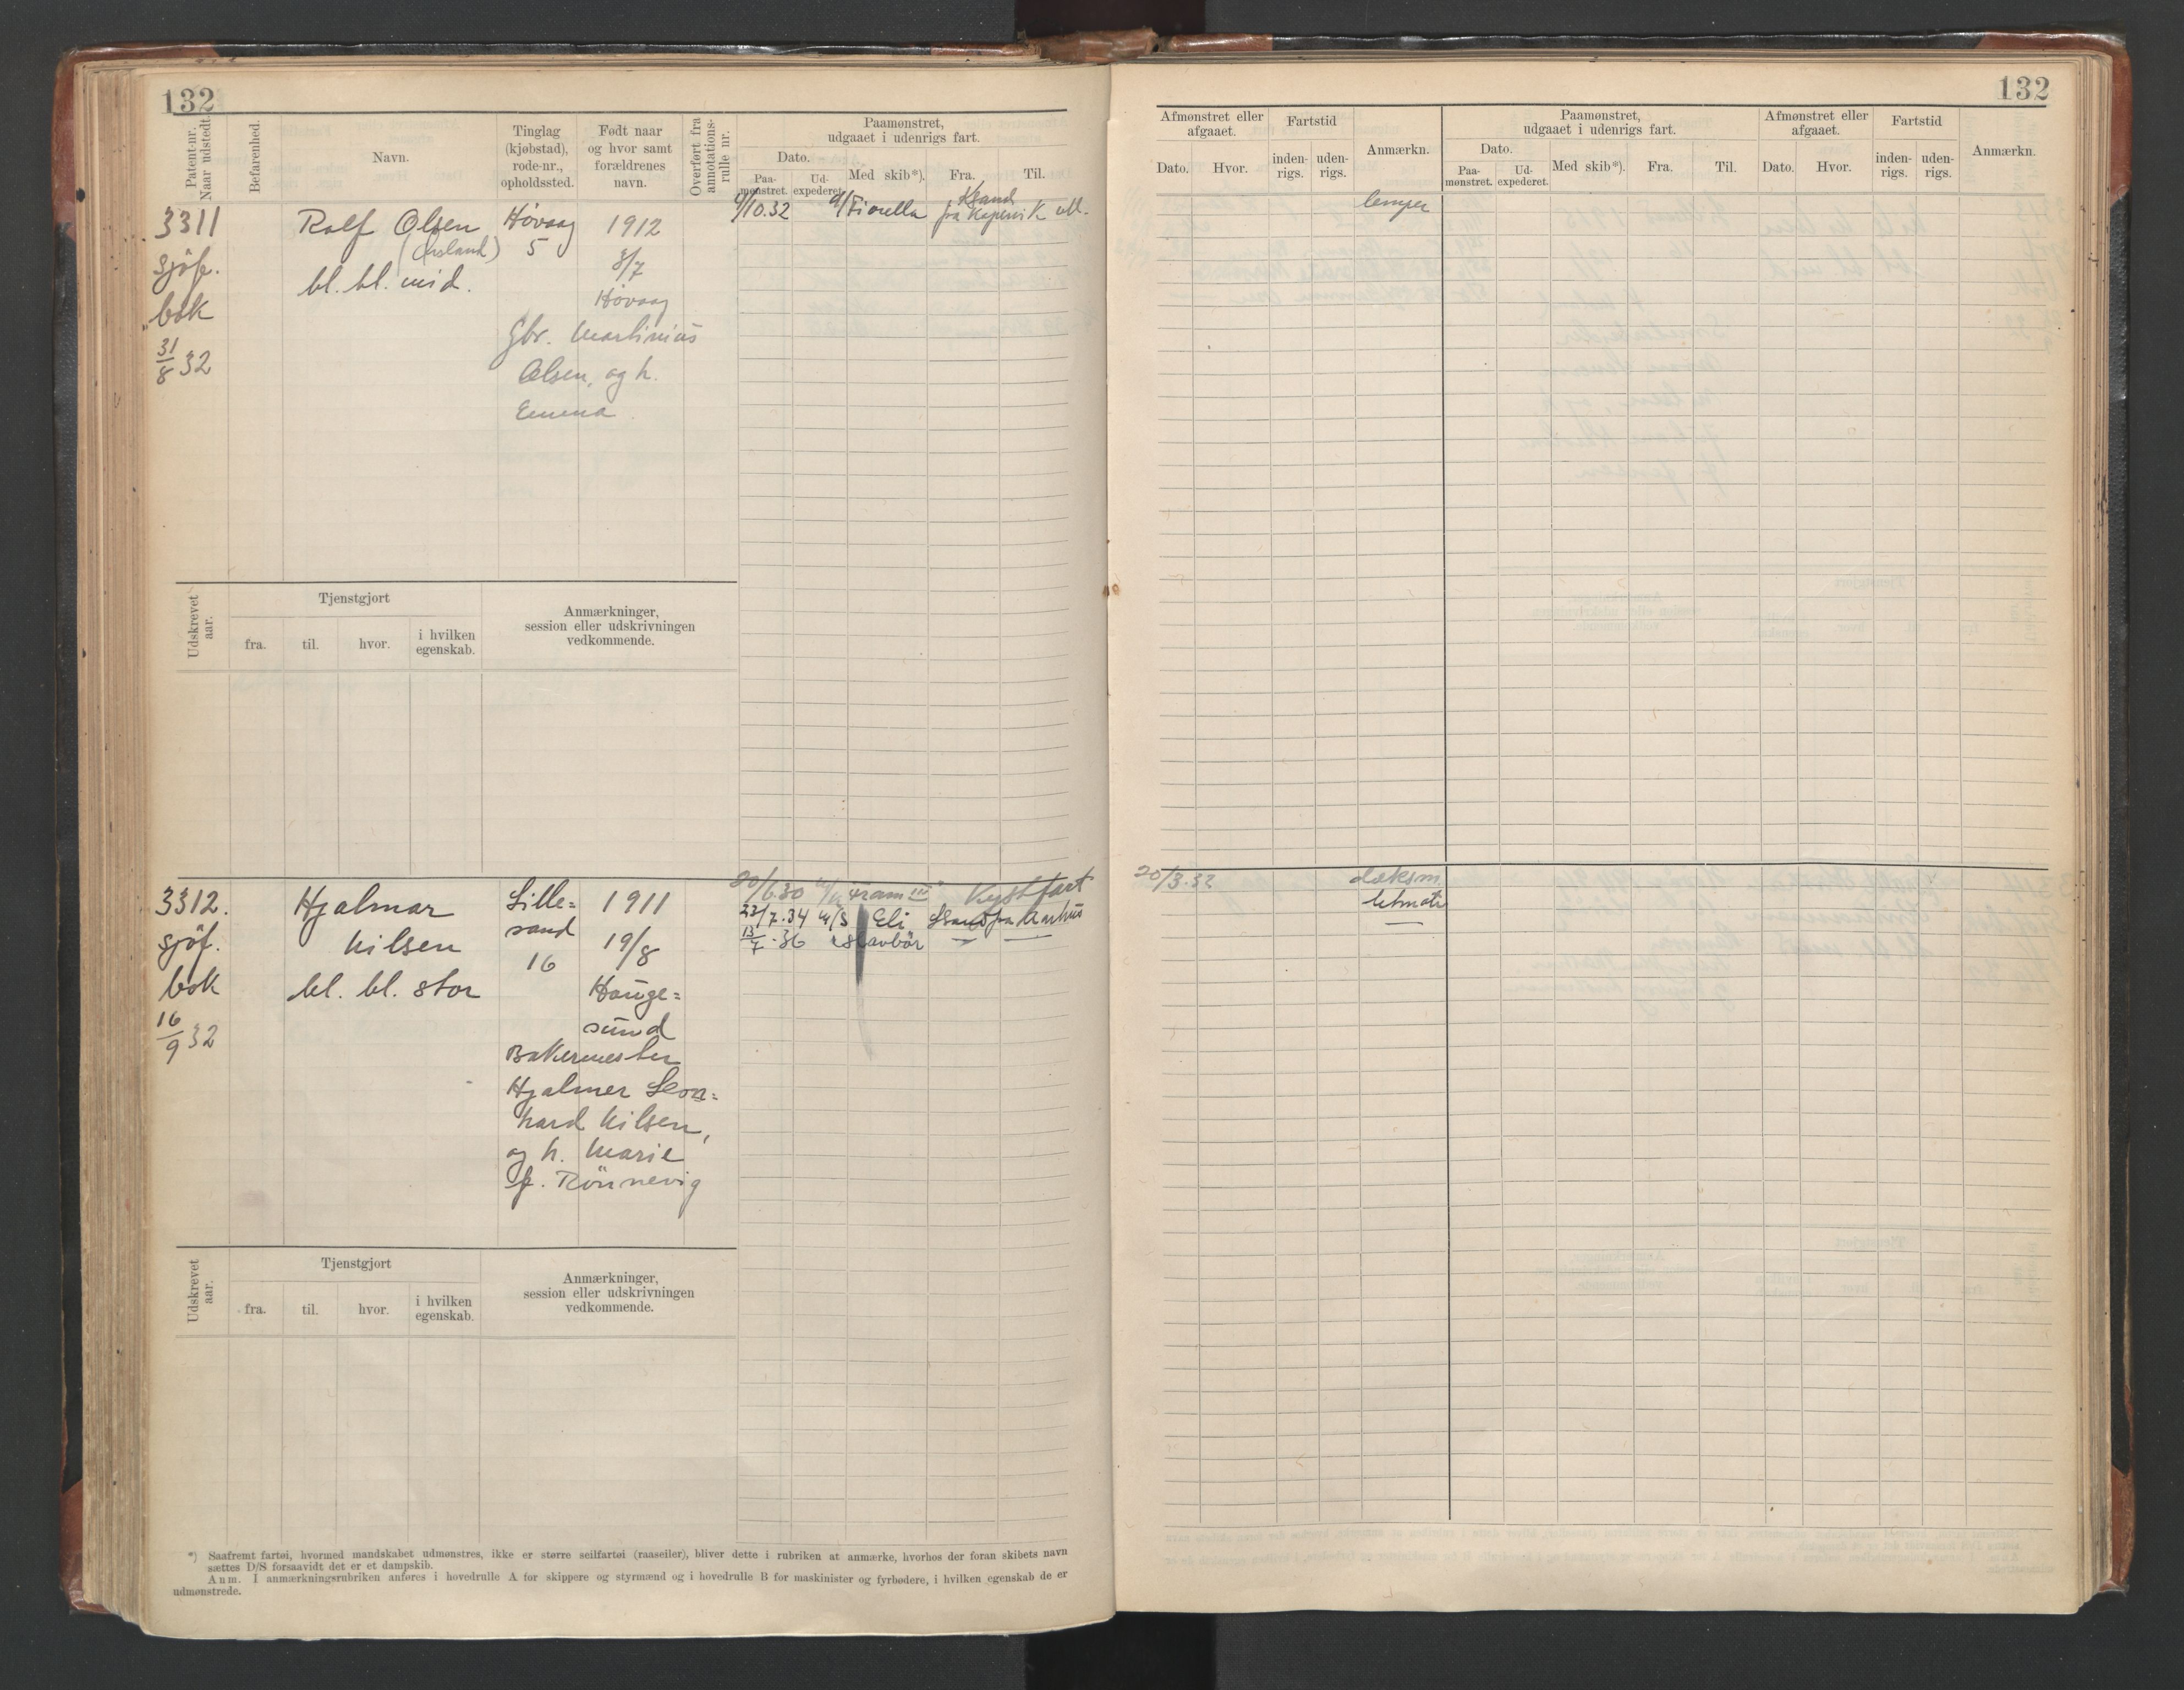 132
Patent-nr.
Naar udstedt.
Befarenhed.
Navn.
Tinglag
(kjøbstad),
rode-nr.,
opholdssted.
Født naar
og hvor samt
forældrenes
navn.
Overført fra
annotations-
rulle nr.
Paamønstret,
udgaaet i udenrigs fart.
Dato.
Paa-
mønstret.
Ud-
expederet.
Med skib*).
Fra.
Til.
3311
sjöf.
bok
31/8 32
Rolf Olsen
bl. bl. mid.
Høvaag
5
1912
8/7
Høvaag
Gbr. Martinius
Olsen, og h.
Emma
9/10.32 Fiorella fra Kopervik utl.
Udskrevet
aar.
Tjenstgjort
fra.
til.
hvor.
i hvilken
egenskab.
Anmærkninger,
session eller udskrivningen
vedkommende.
3312.
sjöf.
bok
16/9 32
Hjalmar
Nilsen
bl. bl. stor
Lille=
sand
16
1911
19/8
Hauge=
sund
Bakermester
Hjalmer Leon=
hard Nilsen,
og h. Marie
f. Rönnevig
20/6.30 Fram III Kystfart
23/7.34 M/S Eli Lsand fra Aarhus
13/7.36
Udskrevet
aar.
Tjenstgjort
fra.
til.
hvor.
i hvilken
egenskab.
Anmærkninger,
session eller udskrivningen
vedkommende.
*) Saafremt fartøi, hvormed mandskabet udmønstres, ikke er større seilfartøi (raaseiler), bliver dette i rubriken at anmærke, hvorhos der foran skibets navn
sættes D/S forsaavidt det er et dampskib.
Anm. I anmærkningsrubriken anføres i hovedrulle A for skippere og styrmænd og i hovedrulle B for maskinister og fyrbødere, i hvilken egenskab de er
udmønstrede.
132
Afmønstret eller
afgaaet.
Dato.
Hvor.
Fartstid
inden-
rigs.
uden-
rigs.
Anmærkn.
Paamønstret,
udgaaet i udenrigs fart.
Dato.
Paa-
mønstret.
Ud-
expederet.
Med skib*).
Fra.
Til.
Afmønstret eller
afgaaet.
Dato.
Hvor.
Fartstid
inden-
rigs.
uden-
rigs.
Anmærkn.
lemper
20/3.32
dæksm.
letmatr